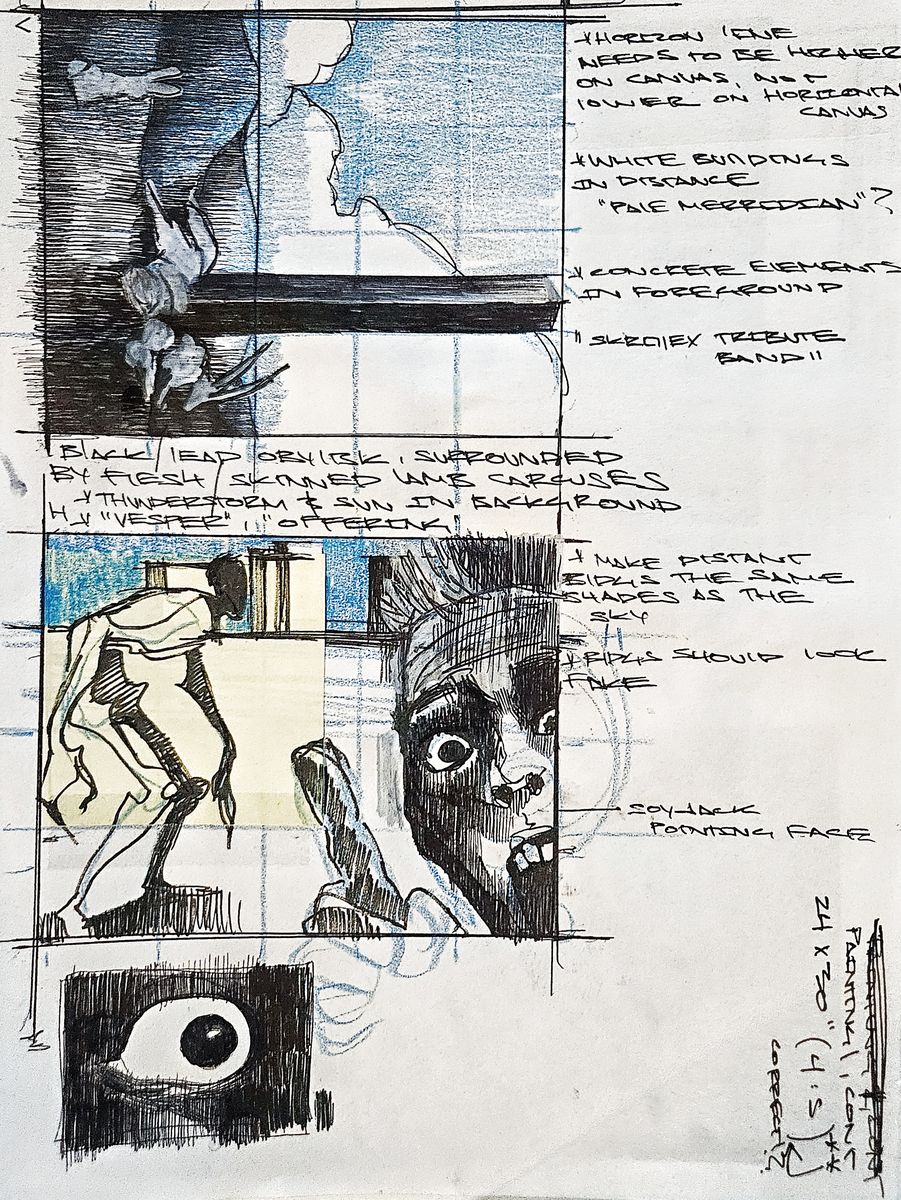 *HORIZON LINE
NEEDS TO BE HIGHER
ON CANVAS, NOT
LOWER ON HORIZONTAL
CANVAS
*WHITE BUILDINGS
IN DISTANCE
"PALE MERREDIAN"?
*CONCRETE ELEMENTS
IN FOREGROUND
"SKRILLEX TRIBUTE
BAND"
BLACK LEAD OBELISK, SURROUNDED
BY FLESH/SKINNED LAMB CARCUSES
*THUNDERSTORM & SUN IN BACKGROUND
* "VESPER", "OFFERING"
* MAKE DISTANT
BLDGS THE SAME
SHADES AS THE
SKY
*BLDGS SHOULD LOOK
FAKE
SOYJACK
POINTING FACE
PAINTING 1, CONC
24 x 30" (4:5)**
CORRECT?